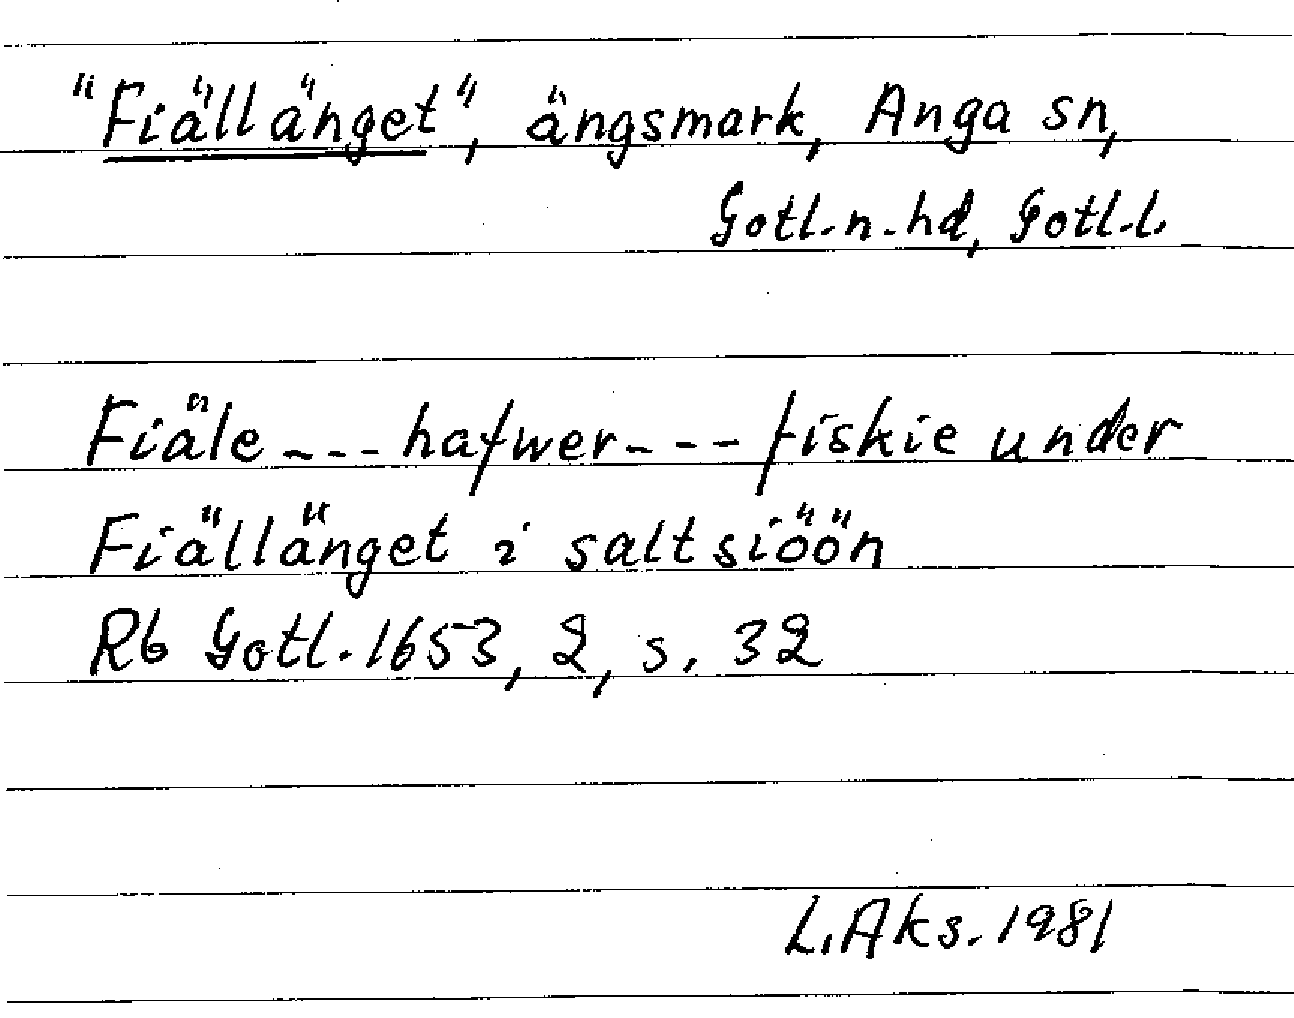 "Fiällänget", ängsmark, Anga sn,
Gotl.n.hd, Gotl.l.
Fiäle --- hafwer --- fiskie under
Fiällänget i saltsiöön
Rb Gotl. 1653, 2, s. 32
L.Aks. 1981